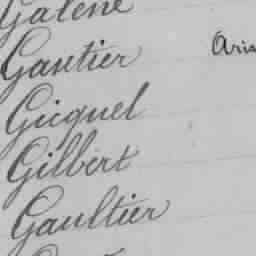 Galene
Gautier Aris
Gicquel
Gilbert
Gaultier